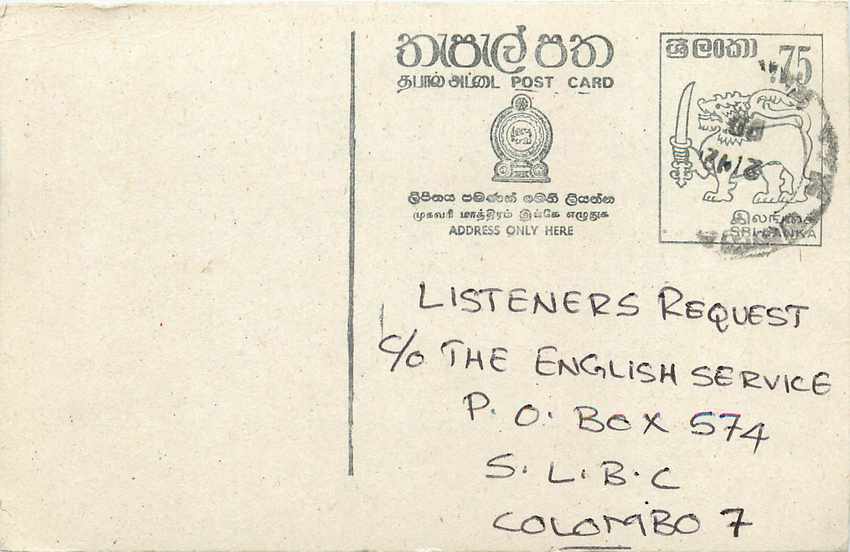 තැපැල් පත
தபால் அட்டை POST CARD
ලිපිනය පමණක් මෙහි ලියන්න
முகவரி மாத்திரம் இங்கே எழுதுக
ADDRESS ONLY HERE
ශ්‍රී ලංකා
75
இலங்கை
SRI LANKA
LISTENERS REQUEST
C/O THE ENGLISH SERVICE
P. O. BOX 574
S. L. B. C
COLOMBO 7